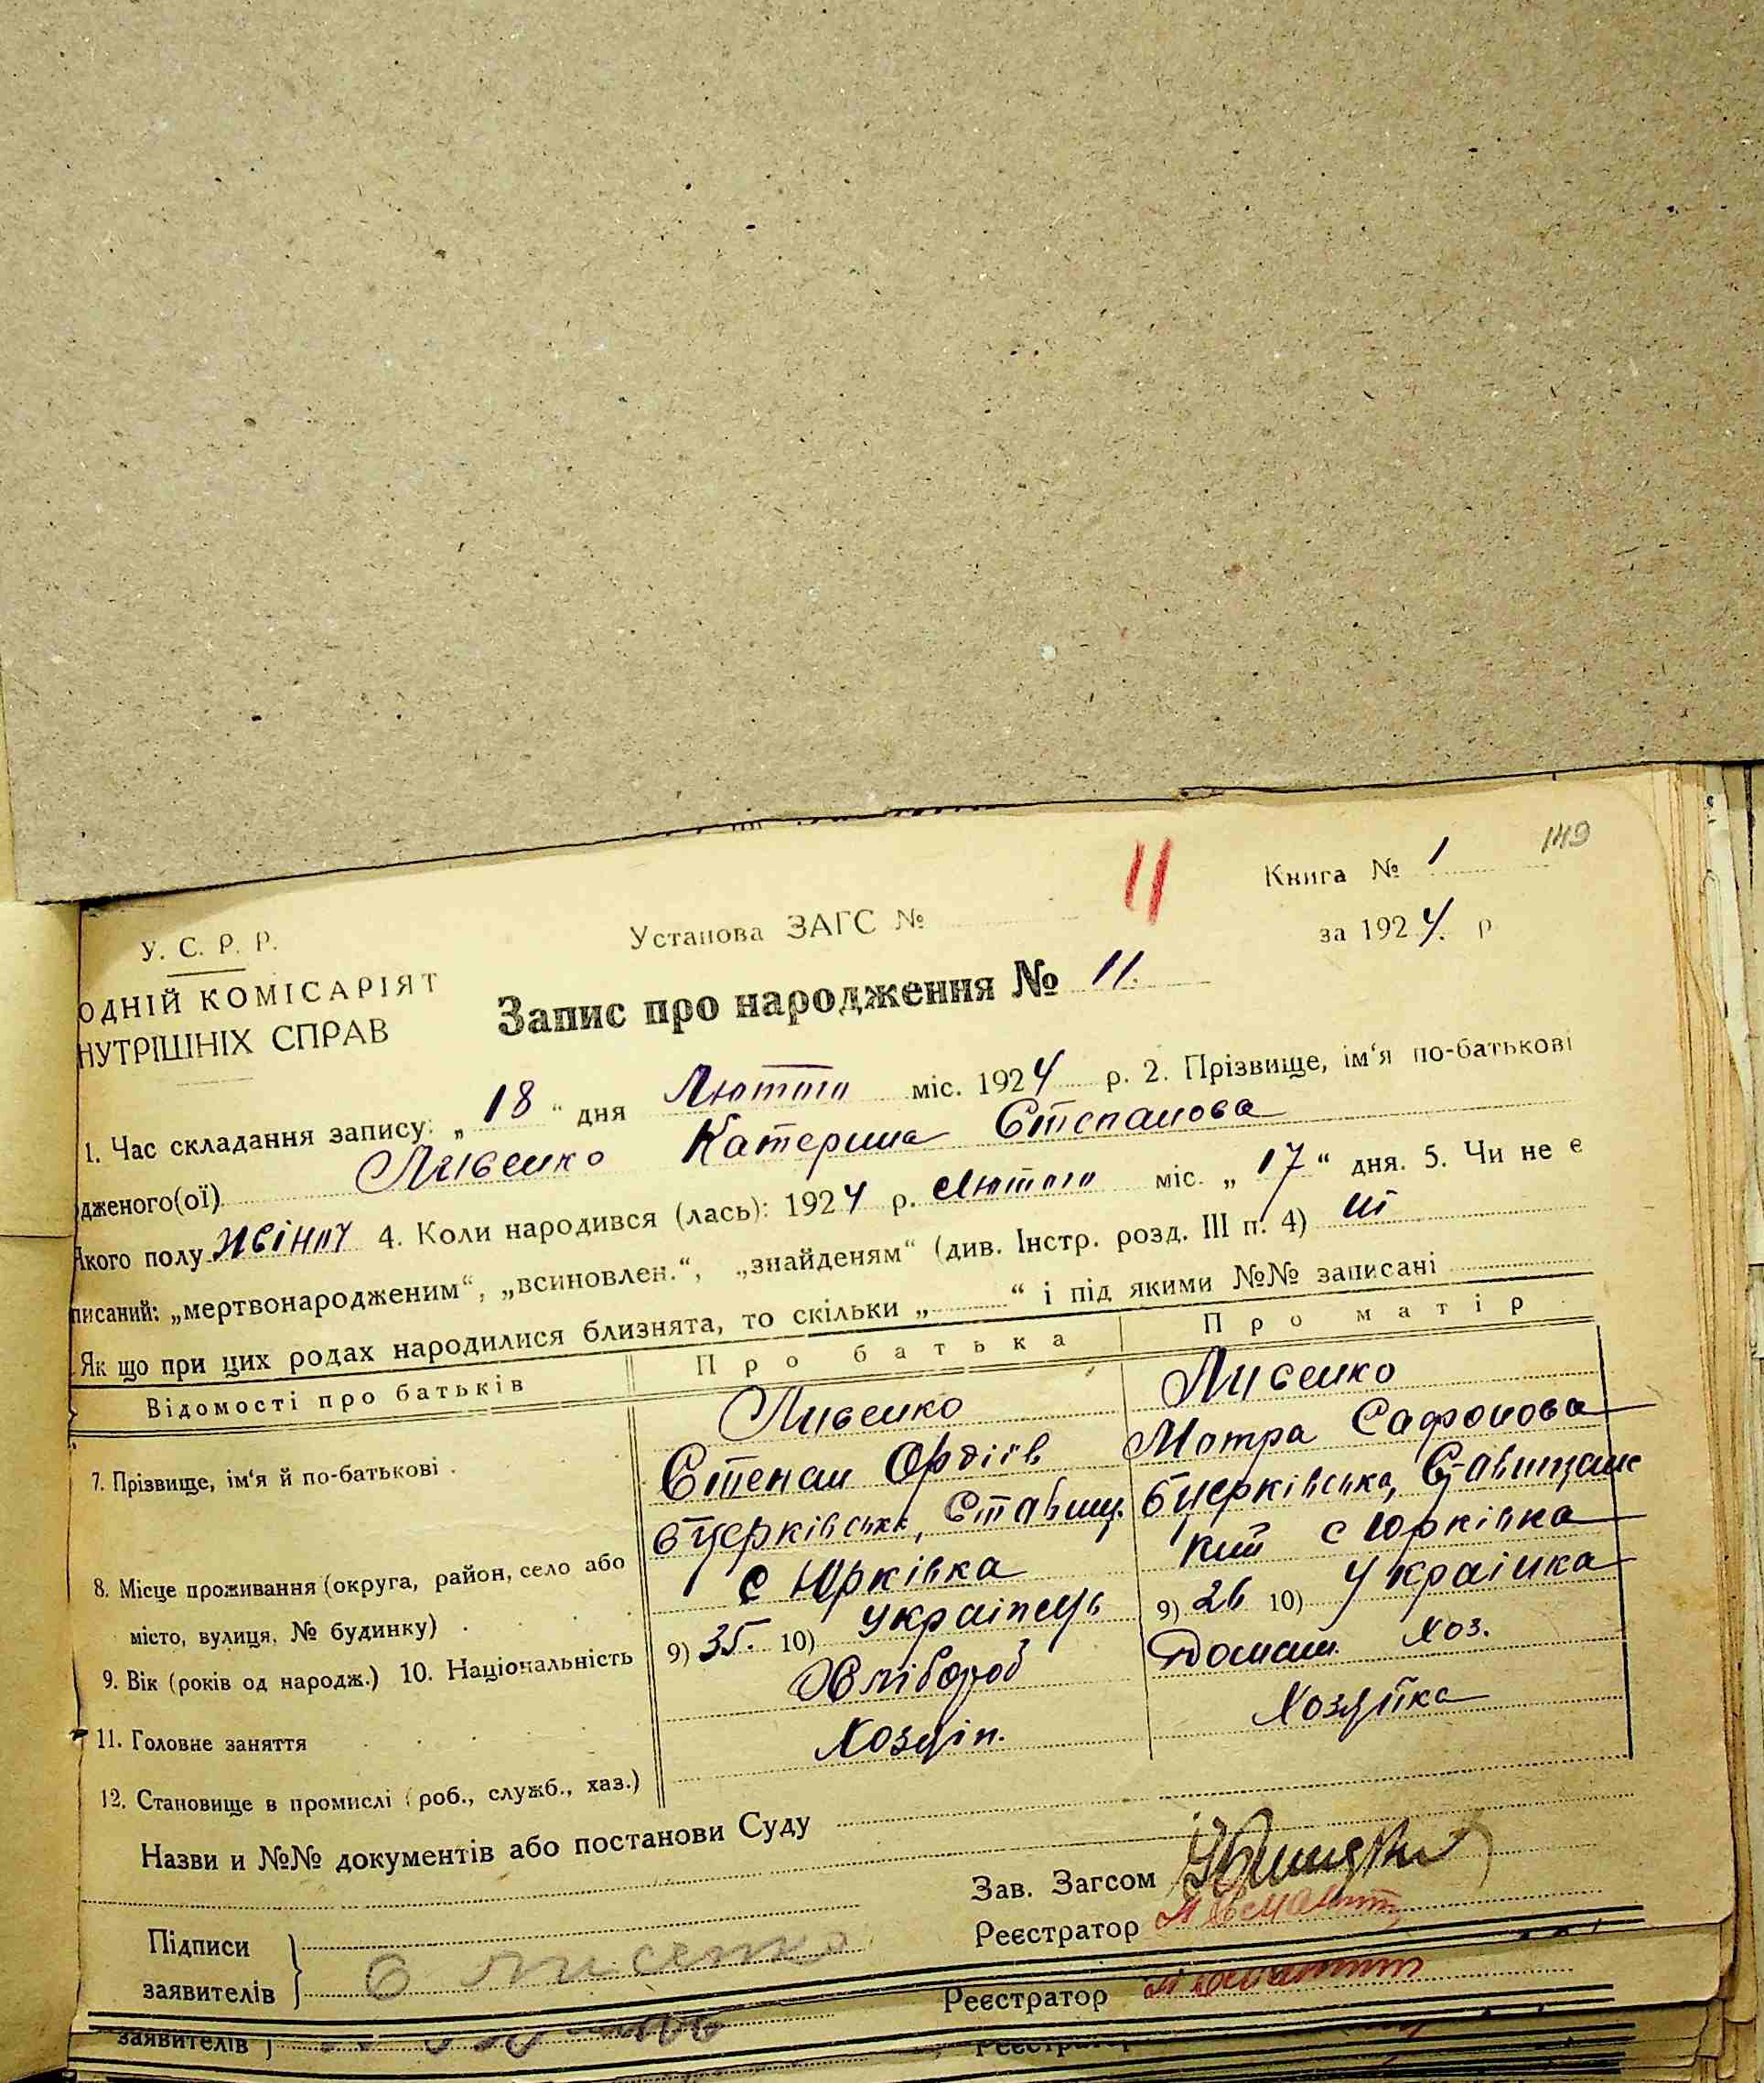 149
Книга № 1
11
У. С. Р. Р.
Установа ЗАГС №
за 1924. р
ОДНІЙ КОМІСАРІЯТ
НУТРІШНІХ СПРАВ
Запис про народження № 11.
1. Час складання запису: „ 18 “ дня Лютого міс. 1924 р. 2. Прізвище, ім‘я по-батькові
дженого(ої) Лисенко Катерина Степанова
Якого полу жіноч 4. Коли народився (лась): 1924 р. Лютого міс. „ 17 “ дня. 5. Чи не є
писаний: „мертвонародженим“, „всиновлен.“, „знайденям“ (див. Інстр. розд. III п. 4) ні
Як що при цих родах народилися близнята, то скільки „ “ і під якими №№ записані
Відомості про батьків Про батька Про матір
Лисенко Лисенко
7. Прізвище, ім‘я й по-батькові Степан Мотра Сафонова
Бцерківська, Ставищ. Бцерківська, Ставищанс
8. Місце проживання (округа, район, село або с Юрківка кий с Юрківка
місто, вулиця, № будинку)
9. Вік (років од народж.) 10. Національність 9) 35. 10) Українець 9) 26 10) Українка
11. Головне заняття Хлібороб Домаш. хоз.
12. Становище в промислі (роб., служб., хаз.) Хозяін. Хозяйка
Назви и №№ документів або постанови Суду
Зав. Загсом
Реєстратор
Підписи
заявителів С Лисенко
Реєстратор
заявителів
Реєстратор